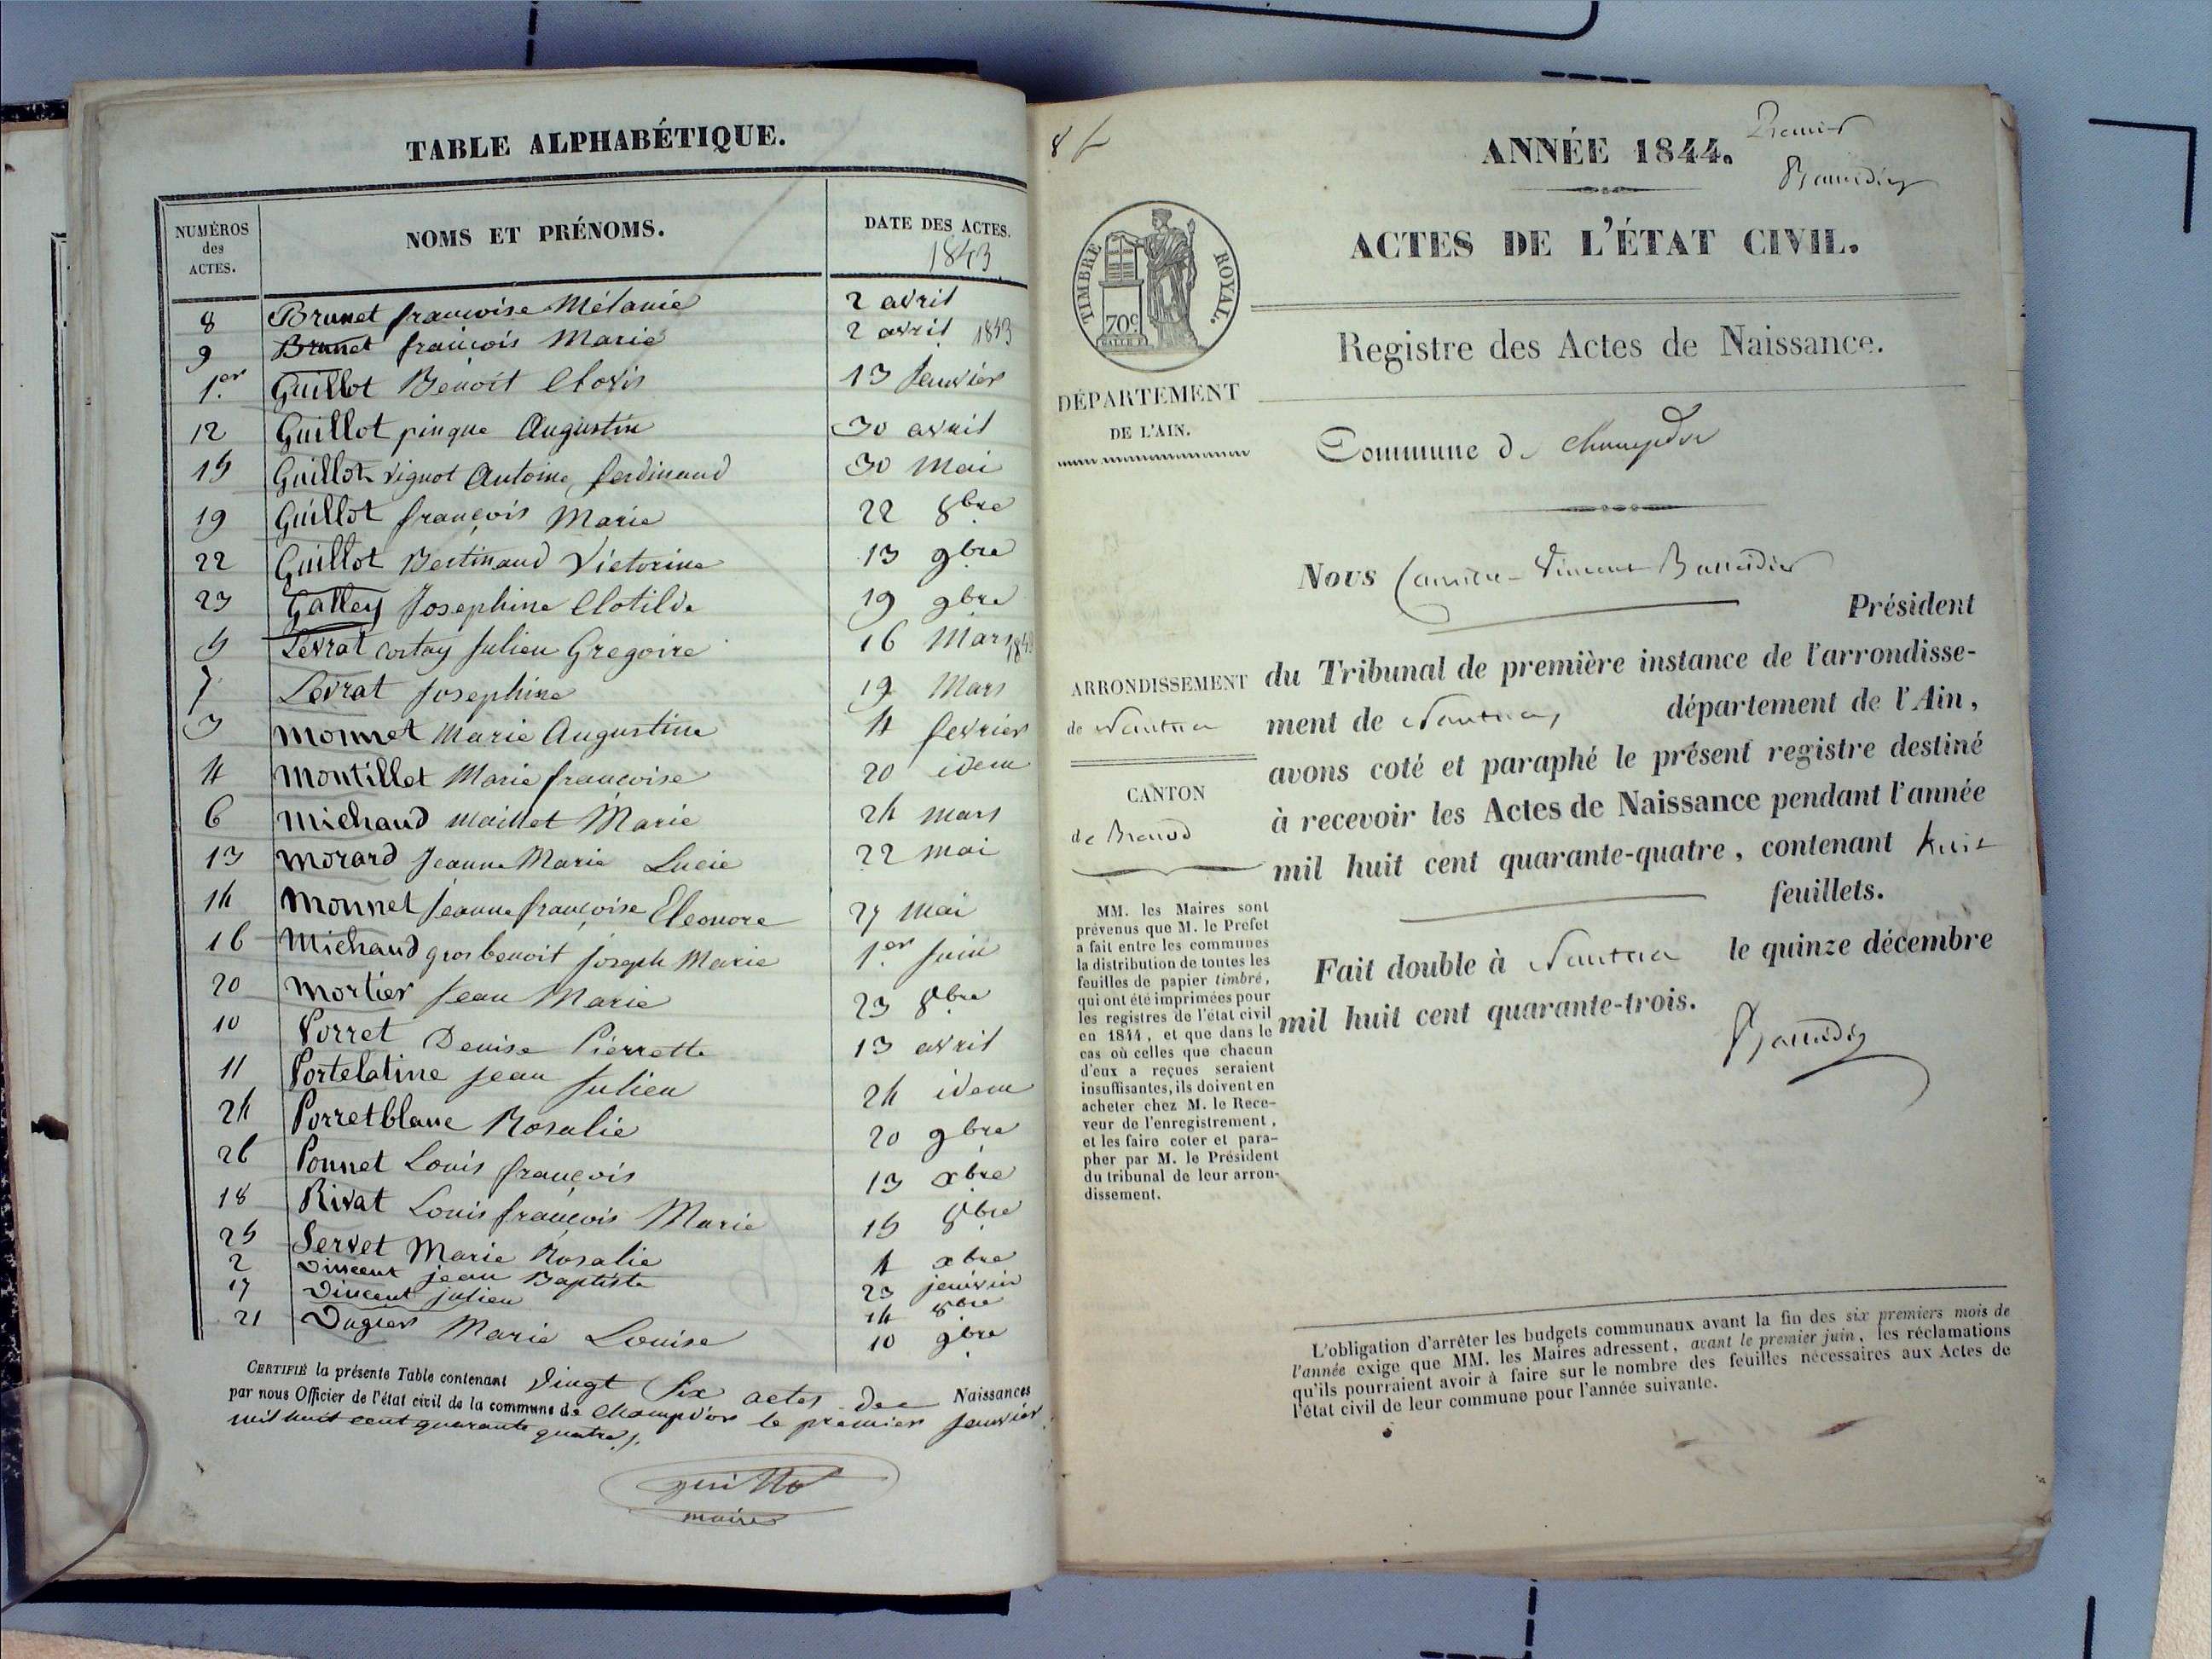 TABLE ALPHABÉTIQUE.
NUMÉROS des ACTES.
NOMS ET PRÉNOMS.
DATE DES ACTES.
1843
8 Brunet françoise Mélanie 2 avril
9 Brunet françois Marie 2 avril 1843
1.er Guillot Benoit Clovis 13 Janvier
12 Guillot pingue Augustin 30 avril
15 Guillot vignot Antoine ferdinand 30 Mai
19 Guillot françois Marie 22 8bre
22 Guillot Bertinaud Victorine 13 9bre
23 Galley Josephine Clotilde 19 9bre
5 Levrat costay Julien Gregoire 16 Mars
7 Levrat Josephine 19 Mars
3 Monnet Marie Augustine 4 fevrier
4 Montillet Marie françoise 20 idem
6 Michaud Maillet Marie 24 mars
13 Morard Jeanne Marie Lucie 22 mai
14 Monnet Jeanne françoise Eleonore 27 Mai
16 Michaud gros benoit joseph Marie 1.er Juin
20 Mortier Jean Marie 23 8bre
10 Porret Denise Pierrette 13 avril
11 Portelatine Jean Julien 24 idem
24 Porretblanc Rosalie 20 9bre
26 Ponnet Louis françois 13 xbre
18 Rivat Louis françois Marie 15 8bre
25 Servet Marie Rosalie 4 xbre
2 Vincent jean Baptiste 23 janvier
17 Vincent julien 14 8bre
21 Vugier Marie Louise 10 9bre
CERTIFIÉ la présente Table contenant Vingt Six actes De Naissances
par nous Officier de l'état civil de la commune de Champdor le premier Janvier
mil huit cent quarante quatre
guillot
maire
8 f
ANNÉE 1844.
Premier
ACTES DE L'ÉTAT CIVIL.
TIMBRE ROYAL.
70c
Registre des Actes de Naissance.
DÉPARTEMENT
DE L'AIN.
Commune de Champdor
Nous
Président
du Tribunal de première instance de l'arrondisse-
ment de Nantua, département de l'Ain,
avons coté et paraphé le présent registre destiné
à recevoir les Actes de Naissance pendant l'année
mil huit cent quarante-quatre, contenant huit
feuillets.
Fait double à Nantua le quinze décembre
mil huit cent quarante-trois.
ARRONDISSEMENT
de Nantua
CANTON
de Brenod
MM. les Maires sont
prévenus que M. le Préfet
a fait entre les communes
la distribution de toutes les
feuilles de papier timbré,
qui ont été imprimées pour
les registres de l'état civil
en 1844, et que dans le
cas où celles que chacun
d'eux a reçues seraient
insuffisantes, ils doivent en
acheter chez M. le Rece-
veur de l'enregistrement,
et les faire coter et para-
pher par M. le Président
du tribunal de leur arron-
dissement.
L'obligation d'arrêter les budgets communaux avant la fin des six premiers mois de
l'année exige que MM. les Maires adressent, avant le premier juin, les réclamations
qu'ils pourraient avoir à faire sur le nombre des feuilles nécessaires aux Actes de
l'état civil de leur commune pour l'année suivante.